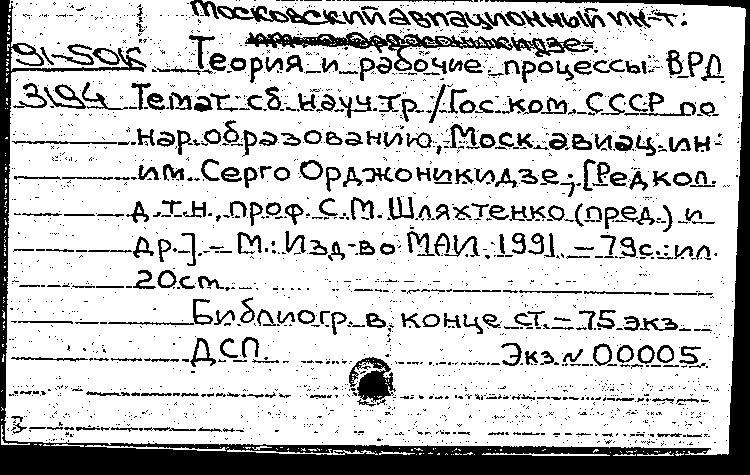 Московский авиационный ин-т.
им. Серго Орджоникидзе.
91-50К Теория и рабочие процессы ВРД
3194 Темат сб науч.тр / Гос ком. СССР по
нар. образованию, Моск. авиац. ин-
им. Серго Орджоникидзе; [Редкол.
д.т.н., проф. С.М. Шляхтенко (пред.) и
др.]. - М.: Изд-во МАИ. 1991. - 79с.: ил.
20 cm.
Библиогр. в конце ст. - 75 экз
ДСП. Экз N 00005.
3